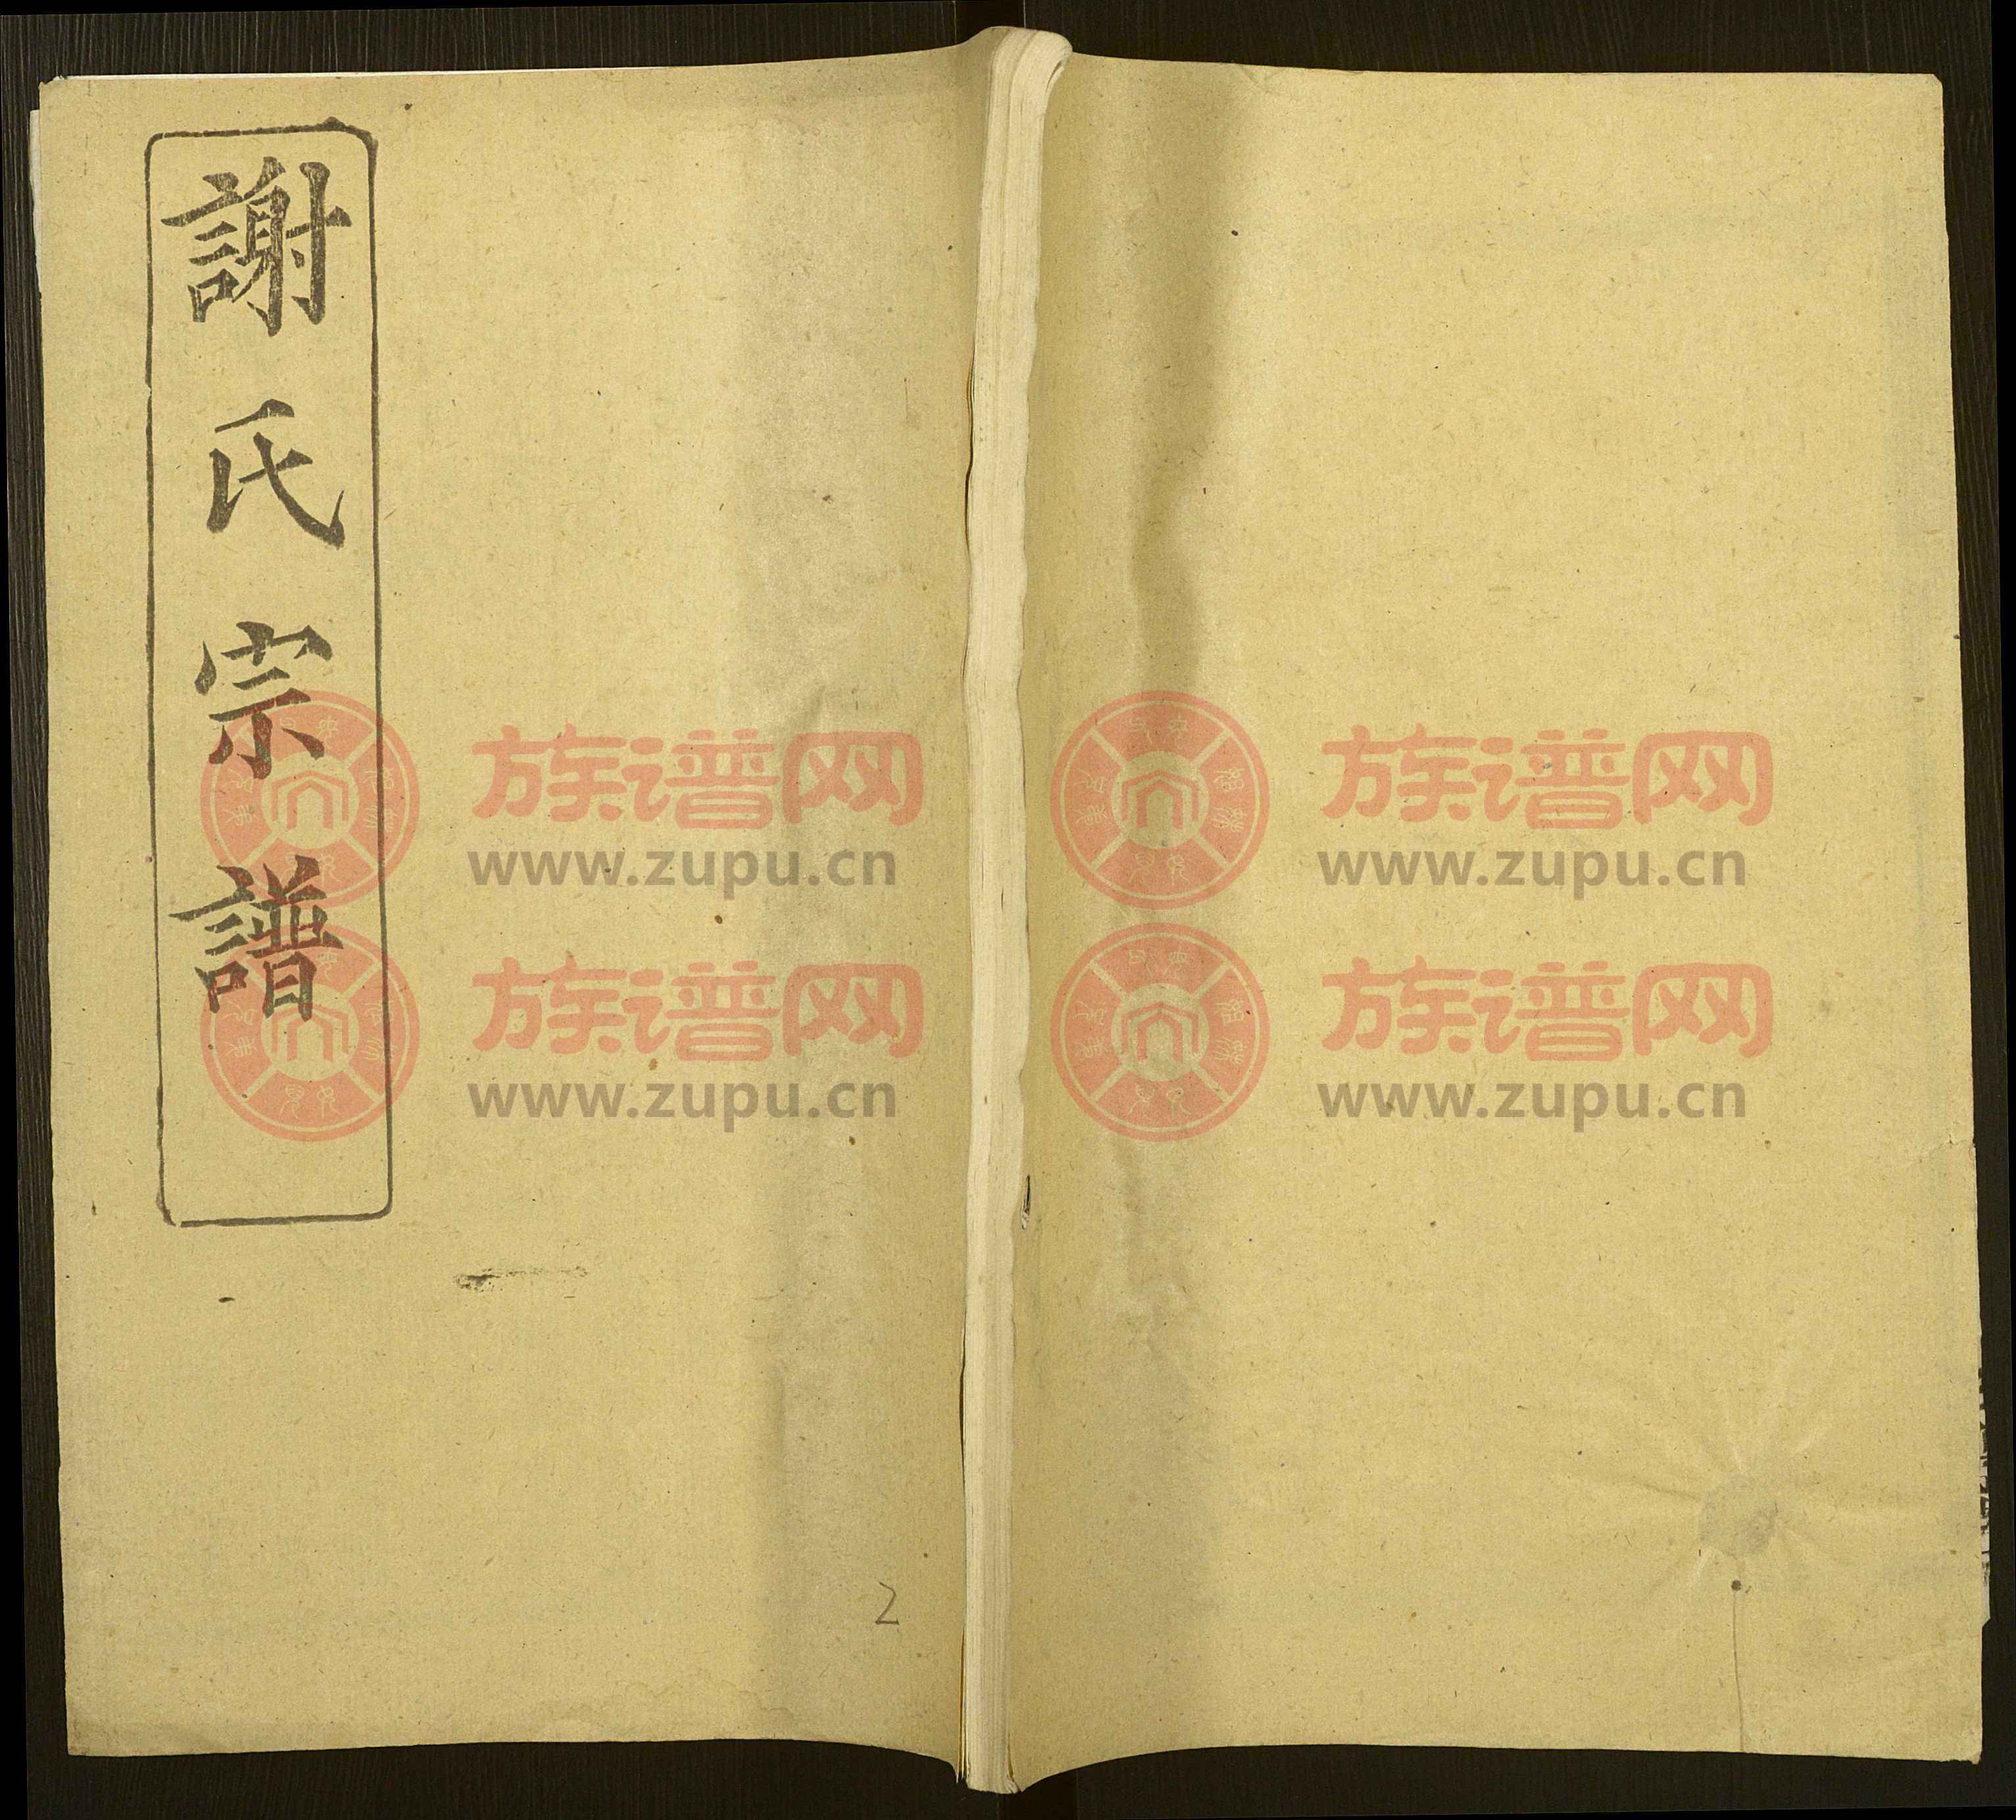 謝氏宗譜
族谱网
www.zupu.cn
族谱网
www.zupu.cn
族谱网
www.zupu.cn
族谱网
www.zupu.cn
2